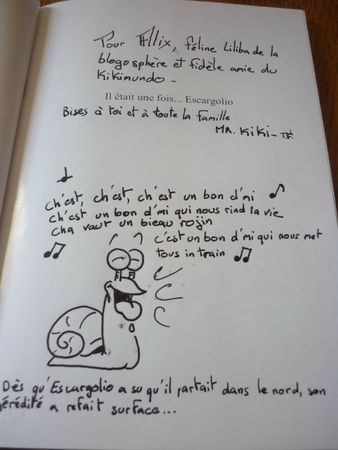 Pour Allix, féline Liliba de la
blogosphère et fidèle amie du
Kikimundo -
Il était une fois... Escargolio
Bises à toi et à toute la famille
MR. KiKi -
Ch'est, ch'est, ch'est un bon d'mi
ch'est un bon d'mi qui nous rind la vie
cha vaut un bieau rojin
c'est un bon d'mi qui nous met
tous in train
Dès qu'Escargolio a su qu'il partait dans le nord, son
érédité a refait surface...